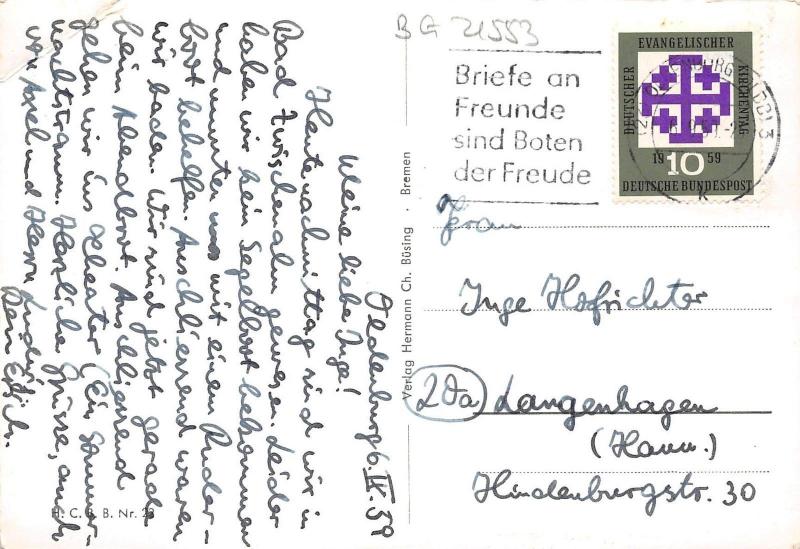 Oldenburg 6. IX. 59
Meine liebe Inge!
Heute nachmittag sind wir in
Bad Zwischenahn gewesen. Leider
haben wir kein Segelboot bekommen
und mussten uns mit einem Ruder-
boot behelfen. Anschliessend waren
wir baden. Wir sind jetzt gerade
beim Abendbrot. Anschliessend
gehen wir ins Theater (Ein Sommer-
nachtstraum. Herzliche Grüsse, auch
von Axel und Herrn
Dein
H. C. B. B. Nr. 23
Verlag Hermann Ch. Büsing · Bremen
BG 21553
Briefe an
Freunde
sind Boten
der Freude
DEUTSCHER EVANGELISCHER KIRCHENTAG
1959
10
DEUTSCHE BUNDESPOST
Frau
Inge Hofrichter
20a Langenhagen
(Hann.)
Hindenburgstr. 30